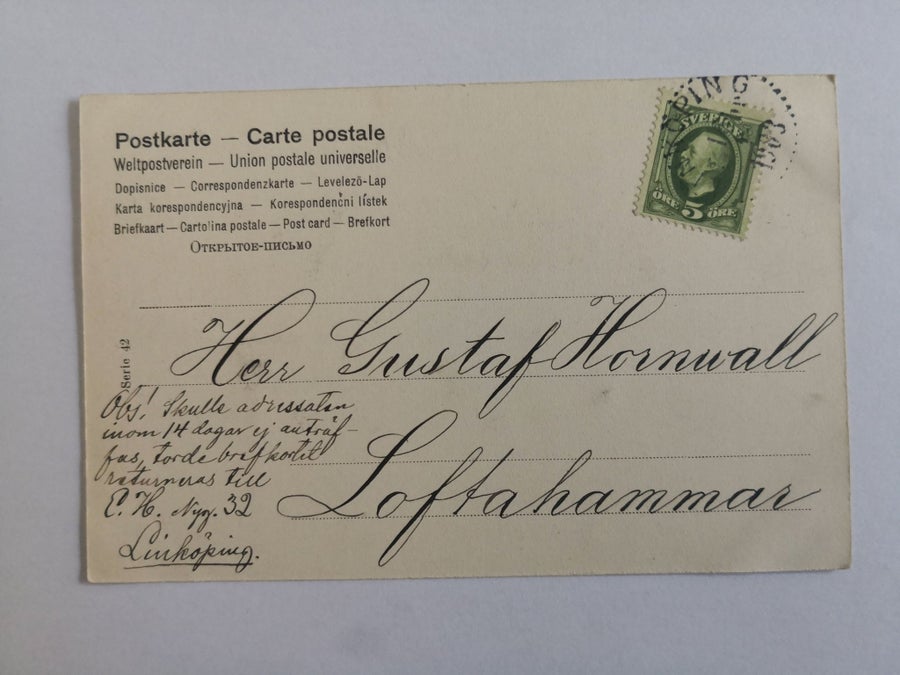 Postkarte — Carte postale
Weltpostverein — Union postale universelle
Dopisnice — Correspondenzkarte — Levelező-Lap
Karta korespondencyjna — Korespondenčni lístek
Briefkaart — Cartolina postale — Post card — Brefkort
Открытое-письмо
KÖPING
1903
SVERIGE
ÖRE 5 ÖRE
Serie 42
Herr Gustaf Hornwall
Loftahammar
Obs! Skulle adressaten
inom 14 dagar ej anträf-
fas, torde brefkortet
returneras till
E. H. Nyg. 32
Linköping.